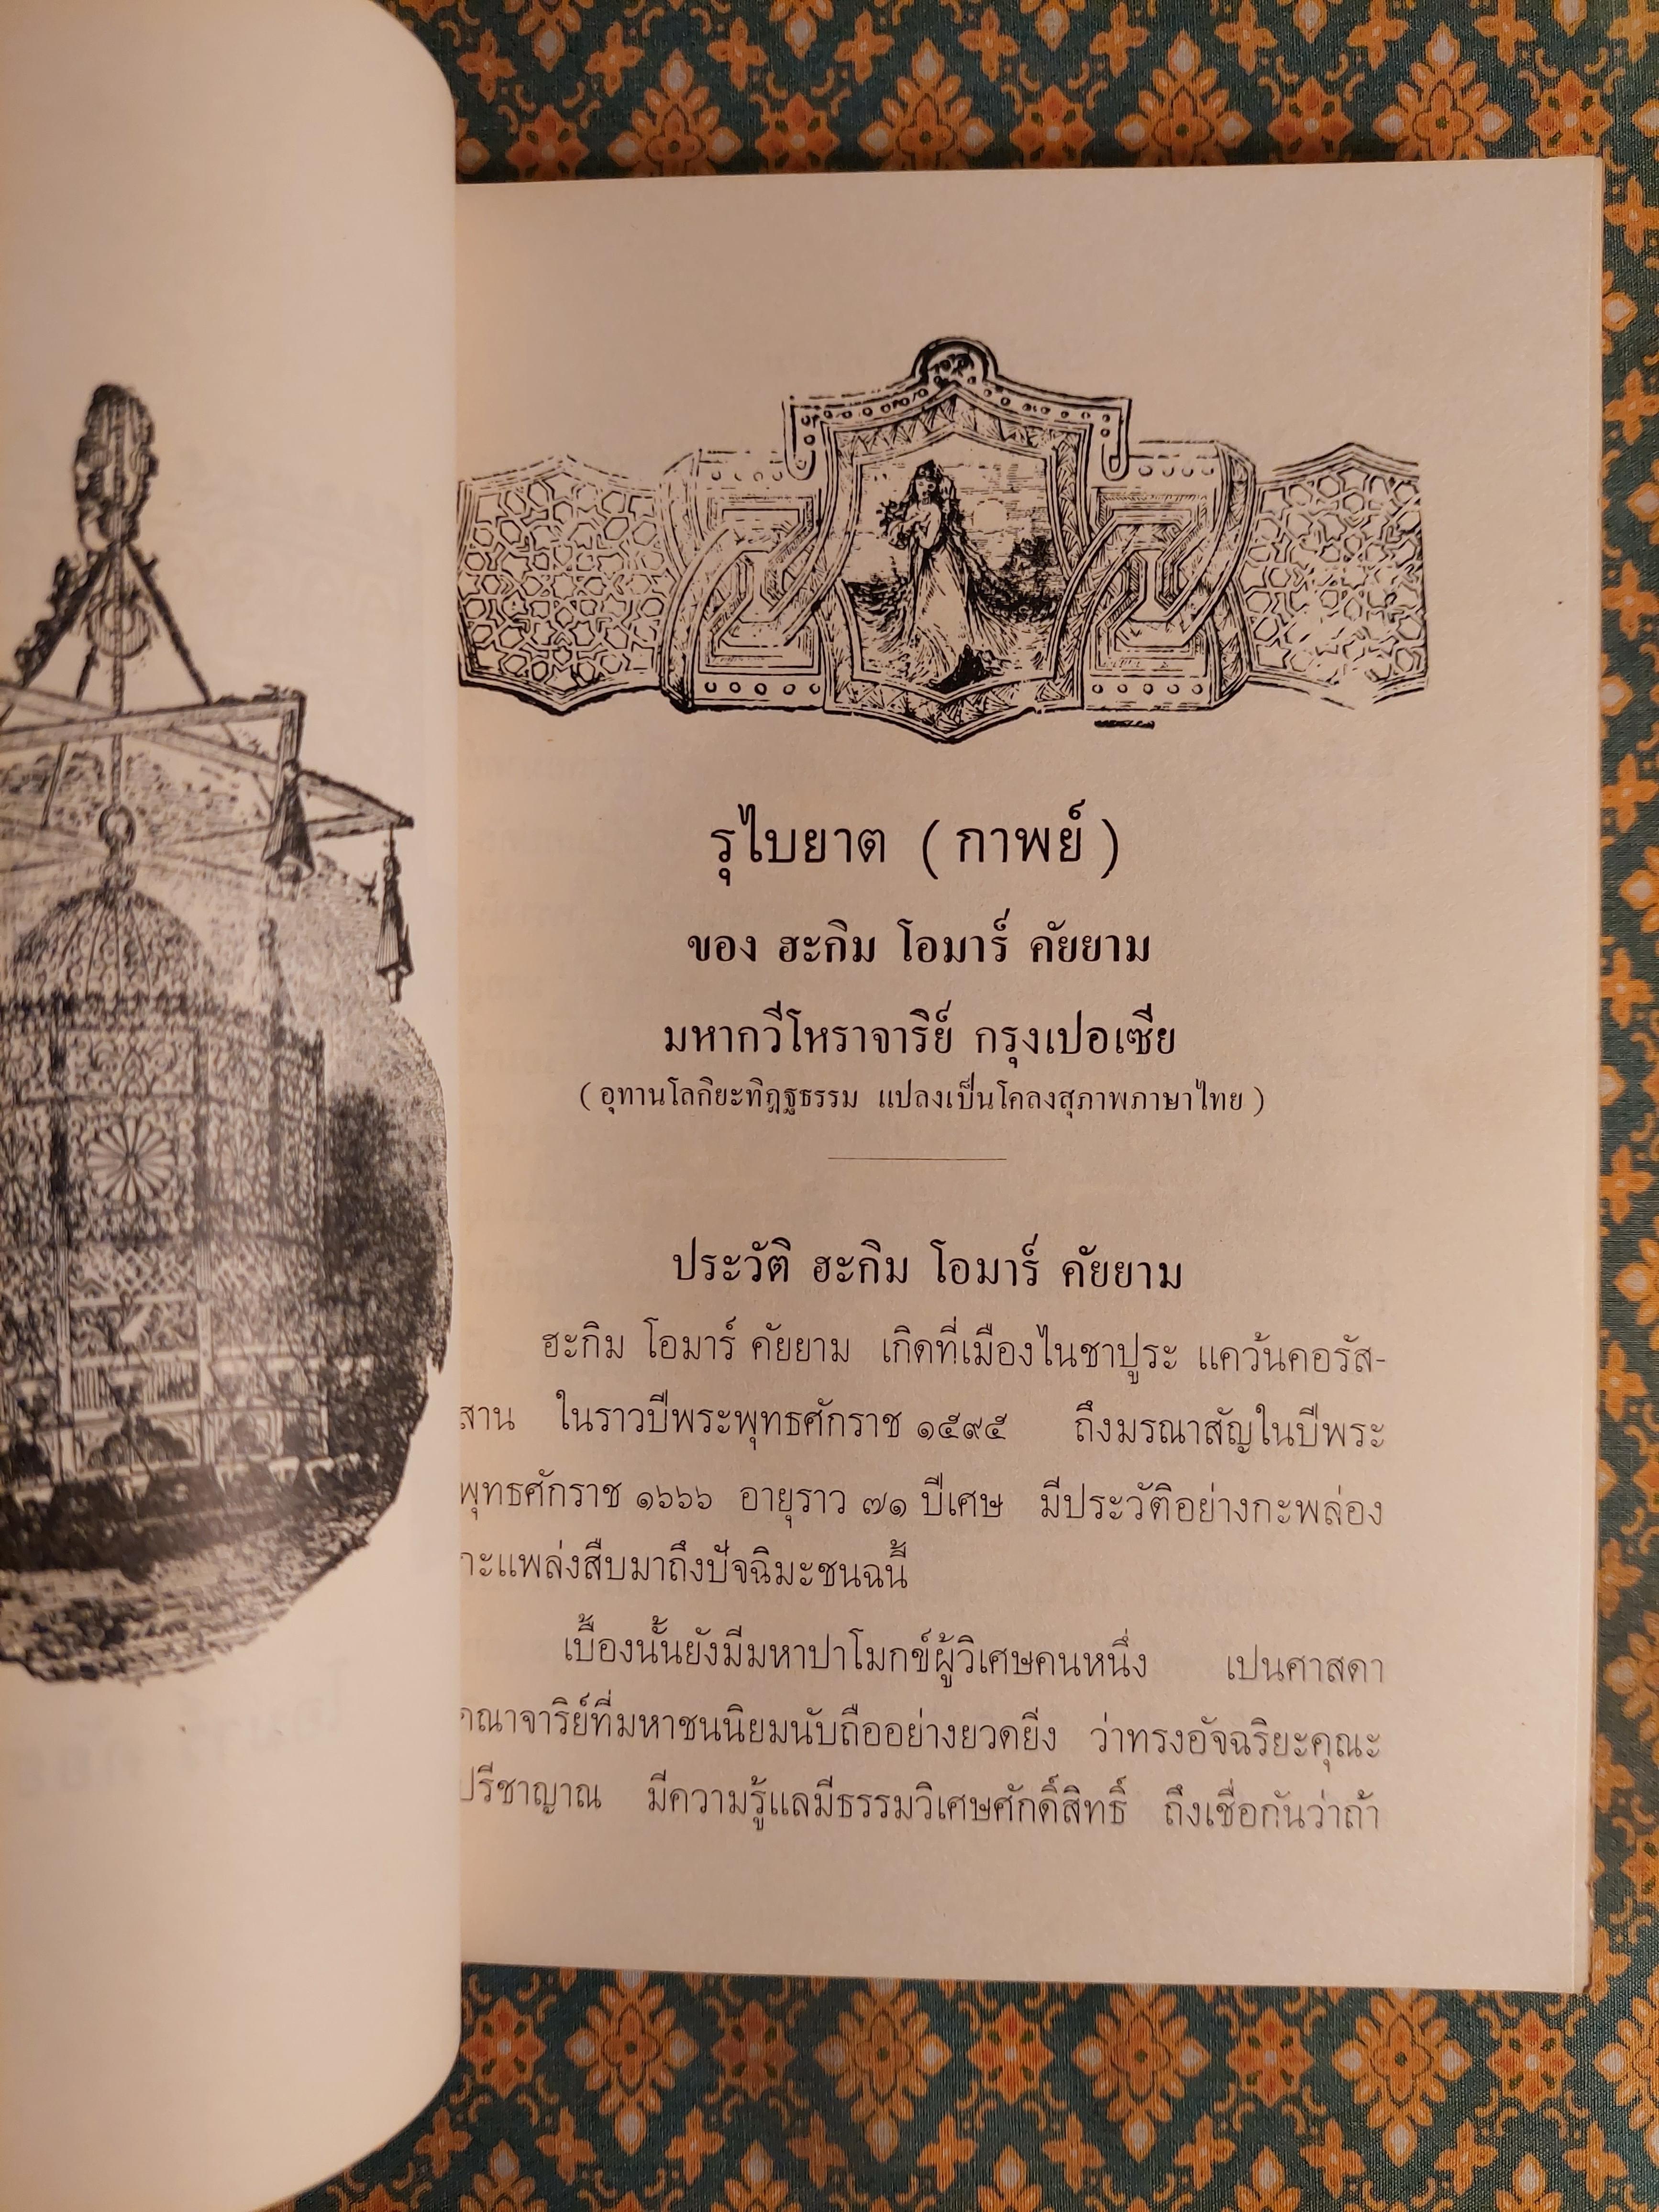 รุไบยาต ( กาพย์ )
ของ ฮะกิม โอมาร์ คัยยาม
มหากวีโหราจาริย์ กรุงเปอเซีย
( อุทานโลกิยะทิฏฐธรรม แปลงเป็นโคลงสุภาพภาษาไทย )
ประวัติ ฮะกิม โอมาร์ คัยยาม
ฮะกิม โอมาร์ คัยยาม เกิดที่เมืองไนชาปูระ แคว้นคอรัส-
สาน ในราวปีพระพุทธศักราช ๑๕๙๕ ถึงมรณาสัญในปีพระ
พุทธศักราช ๑๖๖๖ อายุราว ๗๑ ปีเศษ มีประวัติอย่างกะพล่อง
กะแพล่งสืบมาถึงปัจฉิมะชนฉนี้
เบื้องนั้นยังมีมหาปาโมกข์ผู้วิเศษคนหนึ่ง เปนศาสดา
คณาจาริย์ที่มหาชนนิยมนับถืออย่างยวดยิ่ง ว่าทรงอัจฉริยะคุณะ
ปรีชาญาณ มีความรู้แลมีธรรมวิเศษศักดิ์สิทธิ์ ถึงเชื่อกันว่าถ้า